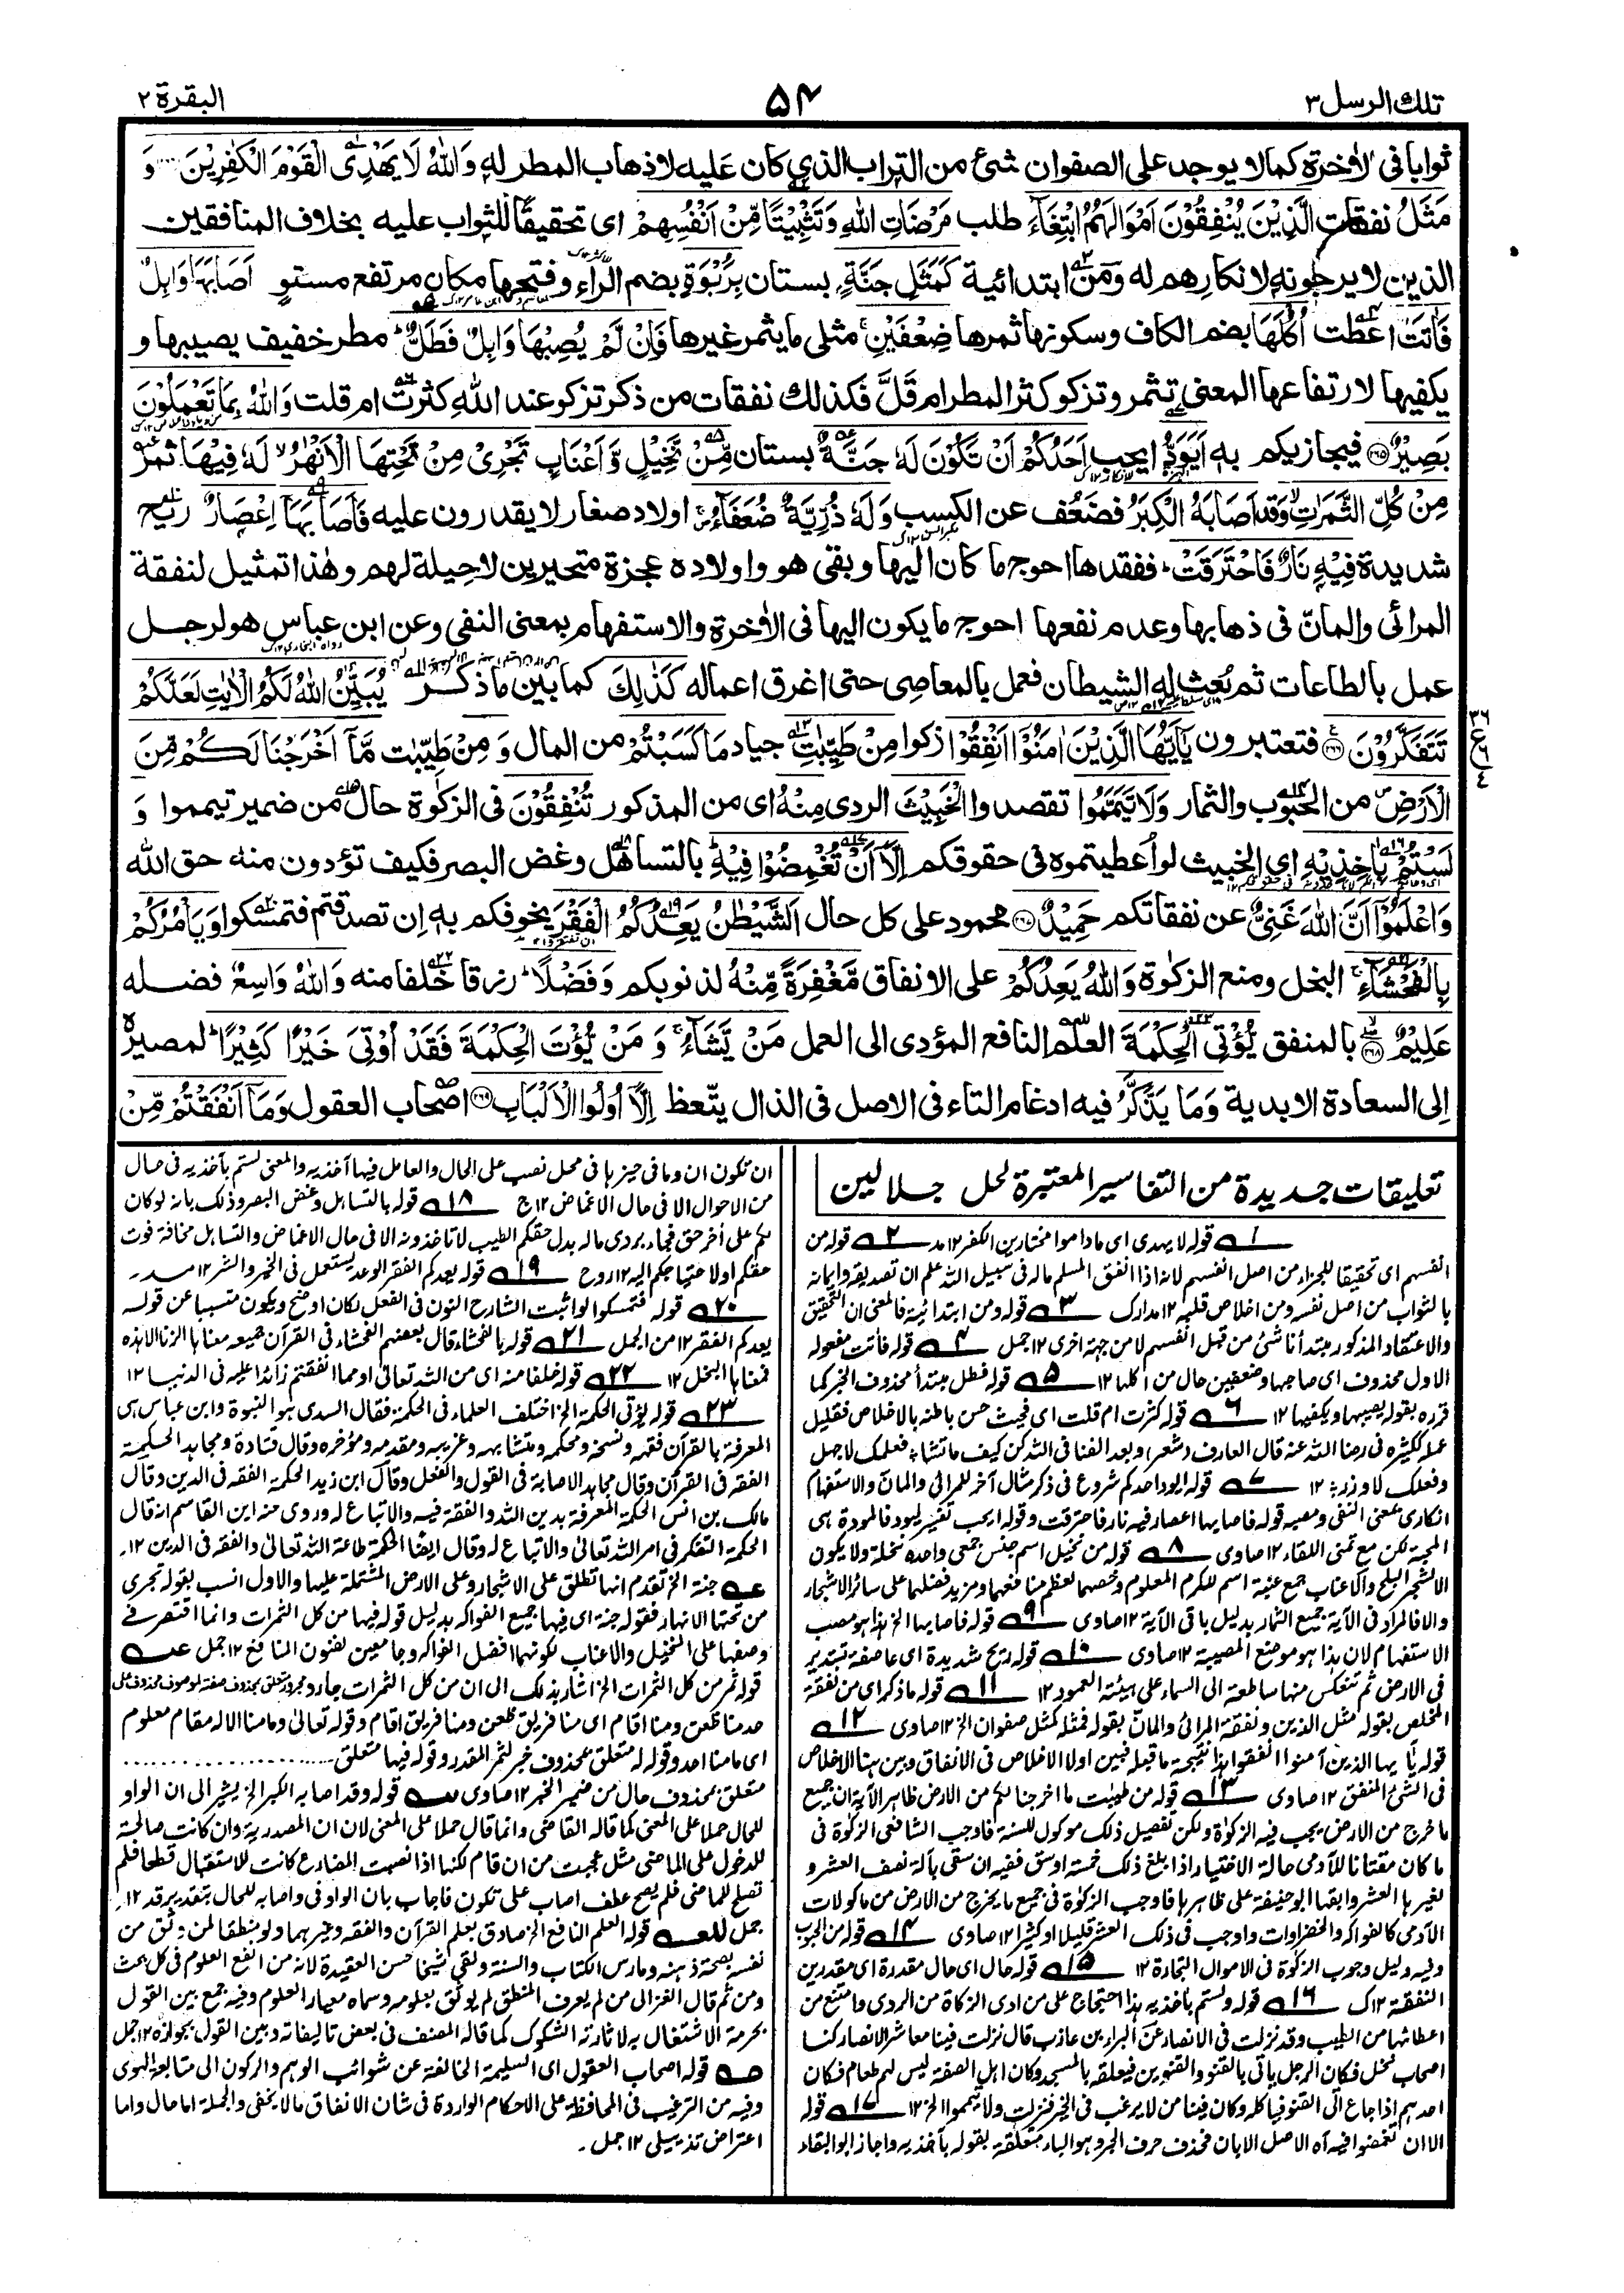 تلك الرسل ٣
٥٤
البقرة ٢
ثوابا فى الاٰخرة كما لا يوجد على الصفوان شئ من التراب الذى كان عليه لاذهاب المطر له وَاللّٰهُ لَا يَهْدِى الْقَوْمَ الْكٰفِرِيْنَ وَ
مَثَلُ نفقات الَّذِيْنَ يُنْفِقُوْنَ اَمْوَالَهُمُ ابْتِغَآءَ طلب مَرْضَاتِ اللّٰهِ وَتَثْبِيْتًا مِّنْ اَنْفُسِهِمْ اى تحقيقًا للثواب عليه بخلاف المنافقين
الذين لا يرجونه لانكارهم له ومن ابتدائية كَمَثَلِ جَنَّةٍ بستان بِرَبْوَةٍ بضم الراء وفتحها مكان مرتفع مستوٍ اَصَابَهَا وَابِلٌ
فَاٰتَتْ اعطت اُكُلَهَا بضم الكاف وسكونها ثمرها ضِعْفَيْنِ مثلى ما يثمر غيرها فَاِنْ لَّمْ يُصِبْهَا وَابِلٌ فَطَلٌّ مطر خفيف يصيبها و
يكفيها لارتفاعها المعنى تثمر وتزكو كثر المطر ام قلَّ فكذلك نفقات من ذكر تزكو عند اللّٰه كثرت ام قلت وَاللّٰهُ بِمَا تَعْمَلُوْنَ
بَصِيْرٌ ﴿٢٦٥﴾ فيجازيكم به اَيَوَدُّ ايحب اَحَدُكُمْ اَنْ تَكُوْنَ لَهٗ جَنَّةٌ بستان مِّنْ نَّخِيْلٍ وَّاَعْنَابٍ تَجْرِىْ مِنْ تَحْتِهَا الْاَنْهٰرُ لَهٗ فِيْهَا ثمر
مِنْ كُلِّ الثَّمَرٰتِ وَقد اَصَابَهُ الْكِبَرُ فضعف عن الكسب وَلَهٗ ذُرِّيَّةٌ ضُعَفَآءُ اولاد صغار لا يقدرون عليه فَاَصَابَهَآ اِعْصَارٌ ريح
شديدة فِيْهِ نَارٌ فَاحْتَرَقَتْ ففقدها احوج ما كان اليها وبقى هو واولاده عجزة متحيرين لا حيلة لهم وهٰذا تمثيل لنفقة
المرائى والمانّ فى ذهابها وعدم نفعها احوج ما يكون اليها فى الاٰخرة والاستفهام بمعنى النفى وعن ابن عباس هو لرجل
عمل بالطاعات ثم بُعث له الشيطان فعمل بالمعاصى حتى اغرق اعماله كَذٰلِكَ كما بين ما ذكر يُبَيِّنُ اللّٰهُ لَكُمُ الْاٰيٰتِ لَعَلَّكُمْ
تَتَفَكَّرُوْنَ ﴿٢٦٦﴾ فتعتبرون يٰٓاَيُّهَا الَّذِيْنَ اٰمَنُوْٓا اَنْفِقُوْا زكوا مِنْ طَيِّبٰتِ جياد مَا كَسَبْتُمْ من المال وَ مِنْ طَيِّبٰت مَّآ اَخْرَجْنَا لَكُمْ مِّنَ
الْاَرْضِ من الحبوب والثمار وَلَا تَيَمَّمُوا تقصدوا الْخَبِيْثَ الردى مِنْهُ اى من المذكور تُنْفِقُوْنَ فى الزكوة حال من ضمير تيمموا وَ
لَسْتُمْ بِاٰخِذِيْهِ اى الخبيث لو اُعطيتموه فى حقوقكم اِلَّآ اَنْ تُغْمِضُوْا فِيْهِ بالتساهل وغض البصر فكيف تؤدون منه حق اللّٰه
وَاعْلَمُوْٓا اَنَّ اللّٰهَ غَنِىٌّ عن نفقاتكم حَمِيْدٌ ﴿٢٦٧﴾ محمود على كل حال اَلشَّيْطٰنُ يَعِدُكُمُ الْفَقْرَ يخوفكم به ان تصدقتم فتمسكوا وَيَاْمُرُكُمْ
بِالْفَحْشَآءِ البخل ومنع الزكوة وَاللّٰهُ يَعِدُكُمْ على الانفاق مَّغْفِرَةً مِّنْهُ لذنوبكم وَفَضْلًا رزقا خلفا منه وَاللّٰهُ وَاسِعٌ فضله
عَلِيْمٌ ﴿٢٦٨﴾ بالمنفق يُّؤْتِى الْحِكْمَةَ العلم النافع المؤدى الى العمل مَنْ يَّشَآءُ وَ مَنْ يُّؤْتَ الْحِكْمَةَ فَقَدْ اُوْتِىَ خَيْرًا كَثِيْرًا لمصيره
الى السعادة الابدية وَمَا يَذَّكَّرُ فيه ادغام التاء فى الاصل فى الذال يتّعظ اِلَّآ اُولُوا الْاَلْبَابِ ﴿٢٦٩﴾ اصحاب العقول وَمَآ اَنْفَقْتُمْ مِّنْ
تعليقات جديدة من التفاسير المعتبرة لحل جلالين
١ قوله لا يهدى اى ما داموا مختارين الكفر ١٢ مد ٢ قوله من
انفسهم اى تحقيقا للجزاء من اصل انفسهم لانه اذا انفق المسلم ماله فى سبيل الله علم ان تصديقه وايمانه
بالثواب من اصل نفسه ومن اخلاص قلبه ١٢ مدارك ٣ قوله ومن ابتدائية فالمعنى ان التحقيق
والاعتقاد المذكور مبتدأ ناشئ من قبل انفسهم لا من جهة اخرى ١٢ جمل ٤ قوله فاٰتت مفعوله
الاول محذوف اى صاحبها وضعفين حال من اكلها ١٢ ٥ قوله فطل مبتدأ محذوف الخبر كما
قرره بقوله يصيبها ويكفيها ١٢ ٦ قوله كثرت ام قلت اى فحيث حسن باطنه بالاخلاص فقليل
عمله ككثيره فى رضا الله عنه قال العارف (شعر) وبعد الفنا فى الله كن كيف ما تشاء فعلمك لا جهل
وفعلك لا وزر ١٢ ٧ قوله ايود احدكم شروع فى ذكر مثال آخر للمرائى والمانّ والاستفهام
انكارى بمعنى النفى ومصبه قوله فاصابها اعصار فيه نار فاحترقت وقوله ايحب تفسير ليود فالمودة هى
المحبة لكن مع تمنى اللقاء ١٢ صاوى ٨ قوله من نخيل اسم جنس جمعى واحده نخلة ولا يكون
الا لشجر البلح والاعناب جمع عنبة اسم للكرم المعلوم وخصهما لعظم منافعهما ومزيد فضلهما على سائر الاشجار
والا فالمراد فى الآية جميع الثمار بدليل باقى الآية ١٢ صاوى ٩ قوله فاصابها الخ هذا هو مصب
الاستفهام لان هذا هو موضع المصيبة ١٢ صاوى ١٠ قوله ريح شديدة اى عاصفة تستدير
فى الارض ثم تنعكس منها ساطعة الى السماء على هيئة العمود ١٢ ١١ قوله ما ذكر اى من نفقة
المخلص بقوله مثل الذين ونفقة المرائى والمانّ بقوله فمثله كمثل صفوان الخ ١٢ صاوى ١٢
قوله يا ايها الذين آمنوا انفقوا هذا نتيجة ما قبله فبين اولا الاخلاص فى الانفاق وبين هنا الاخلاص
فى الشئ المنفق ١٢ صاوى ١٣ قوله من طيبت ما اخرجنا لكم من الارض ظاهر الآية ان جميع
ما خرج من الارض يجب فيه الزكوٰة ولكن تفصيل ذلك موكول للسنة فاوجب الشافعى الزكوٰة فى
ما كان مقتاتا للآدمى حالة الاختيار اذا بلغ ذلك خمسة اوسق ففيه ان سقى بآلة نصف العشر و
لغيرها العشر وابقها ابو حنيفة على ظاهرها فاوجب الزكوٰة فى جميع ما يخرج من الارض من ماكولات
الآدمى كالفواكه والخضراوات واوجب فى ذلك العشر قليلا او كثيرا ١٢ صاوى ١٤ قوله من الحبوب
وفيه دليل وجوب الزكوٰة فى الاموال التجارة ١٢ ١٥ قوله حال اى حال مقدرة اى مقدرين
النفقة ١٢ ك ١٦ قوله ولستم باٰخذيه هذا احتجاج على من ادى الزكاة من الردى وامتنع من
اعطائها من الطيب وقد نزلت فى الانصار عن البراء بن عازب قال نزلت فينا معاشر الانصار كنا
اصحاب نخل فكان الرجل ياتى بالقنو والقنوين فيعلقه بالمسجد وكان اهل الصفة ليس لهم طعام فكان
احدهم اذا جاع اتى القنو فياكله وكان فينا من لا يرغب فى الخير فنزلت ولا تيمموا الخ ١٢ ١٧ قوله
الا ان تغمضوا فيه آه الاصل الا بان فحذف حرف الجر وهو الباء متعلقة بقوله بآخذيه واجاز ابو البقاء
ان تكون ان وما فى حيزها فى محل نصب على الحال والعامل فيها آخذيه والمعنى لستم بآخذيه فى حال
من الاحوال الا فى حال الاغماض ١٢ ج ١٨ قوله بالتساهل وغض البصر وذلك بانه لو كان
لكم على آخر حق فجاء بردى ماله بدل حقكم الطيب لا تاخذونه الا فى حال الاغماض والتساهل مخافة فوت
حقكم او لاحتياجكم اليه ١٢ روح ١٩ قوله يعدكم الفقر الوعد يستعمل فى الخير والشر ١٢ مدر
٢٠ قوله فتمسكوا لو اثبت الشارح النون فى الفعل لكان اوضح ويكون متسببا عن قوله
يعدكم الفقر ١٢ من الجمل ٢١ قوله بالفحشاء قال بعضهم الفحشاء فى القرآن جميعه معناها الزنا الا هذه
فمعناها البخل ١٢ ٢٢ قوله خلفا منه اى من الله تعالى او مما انفقتم زائدا عليه فى الدنيا ١٢
٢٣ قوله يؤتى الحكمة الخ اختلف العلماء فى الحكمة فقال السدى هو النبوة وابن عباس هى
المعرفة بالقرآن فقهه ونسخه ومحكمه ومتشابهه وغريبه ومقدمه ومؤخره وقال قتادة ومجاهد الحكمة
الفقه فى القرآن وقال مجاهد الاصابة فى القول والفعل وقال ابن زيد الحكمة الفقه فى الدين وقال
مالك بن انس الحكمة المعرفة بدين الله والفقه فيه والاتباع له وروى عنه ابن القاسم انه قال
الحكمة التفكر فى امر الله تعالى والاتباع له وقال ايضا الحكمة طاعة الله تعالى والفقه فى الدين ١٢
عه جنة الخ تقدم انها تطلق على الاشجار وعلى الارض المشتملة عليها والاول انسب بقوله تجرى
من تحتها الانهار فقوله جنة اى فيها جميع الفواكه بدليل قوله فيها من كل الثمرات وانما اقتصر فى
وصفها على النخيل والاعناب لكونهما افضل الفواكه وجامعين لفنون المنافع ١٢ جمل عه
قوله ثمر من كل الثمرات الخ اشار بذلك الى ان من كل الثمرات جار ومجرور متعلق بمحذوف صفة لموصوف محذوف على
حد منا ظعن ومنا اقام اى منا فريق ظعن ومنا فريق اقام وقوله تعالى وما منا الا له مقام معلوم
اى ما منا احد وقوله له متعلق بمحذوف خبر لثمر المقدر وقوله فيها متعلق....................
متعلق بمحذوف حال من ضمير الخبر ١٢ صاوى سه قوله وقد اصابه الكبر الخ يشير الى ان الواو
للحال حملا على المعنى كما قاله القاضى وانما قال حملا على المعنى لان ان المصدرية وان كانت صالحة
للدخول على الماضى مثل عجبت من ان قام لكنها اذا نصبت المضارع كانت للاستقبال قطعا فلم
تصلح للماضى فلم يصح عطف اصاب على تكون فاجاب بان الواو فى واصابه للحال بتقدير قد ١٢
جمل للعه قوله العلم النافع الخ صادق بعلم القرآن والفقه وغيرهما ولو منطقا لمن وثق من
نفسه بصحة ذهنه ومارس الكتاب والسنة ولقى شيخا حسن العقيدة لانه من انفع العلوم فى كل بحث
ومن ثم قال الغزالى من لم يعرف المنطق لم يوثق بعلومه وسماه معيار العلوم وفيه جمع بين القول
بحرمة الاشتغال به لاثارته الشكوك كما قاله المصنف فى بعض تاليفاته وبين القول بجوازه ١٢ جمل
صه قوله اصحاب العقول اى السليمة الخالصة عن شوائب الوهم والركون الى متابعة الهوى
وفيه من الترغيب فى المحافظة على الاحكام الواردة فى شان الانفاق ما لا يخفى والجملة اما حال واما
اعتراض تذييلى ١٢ جمل -